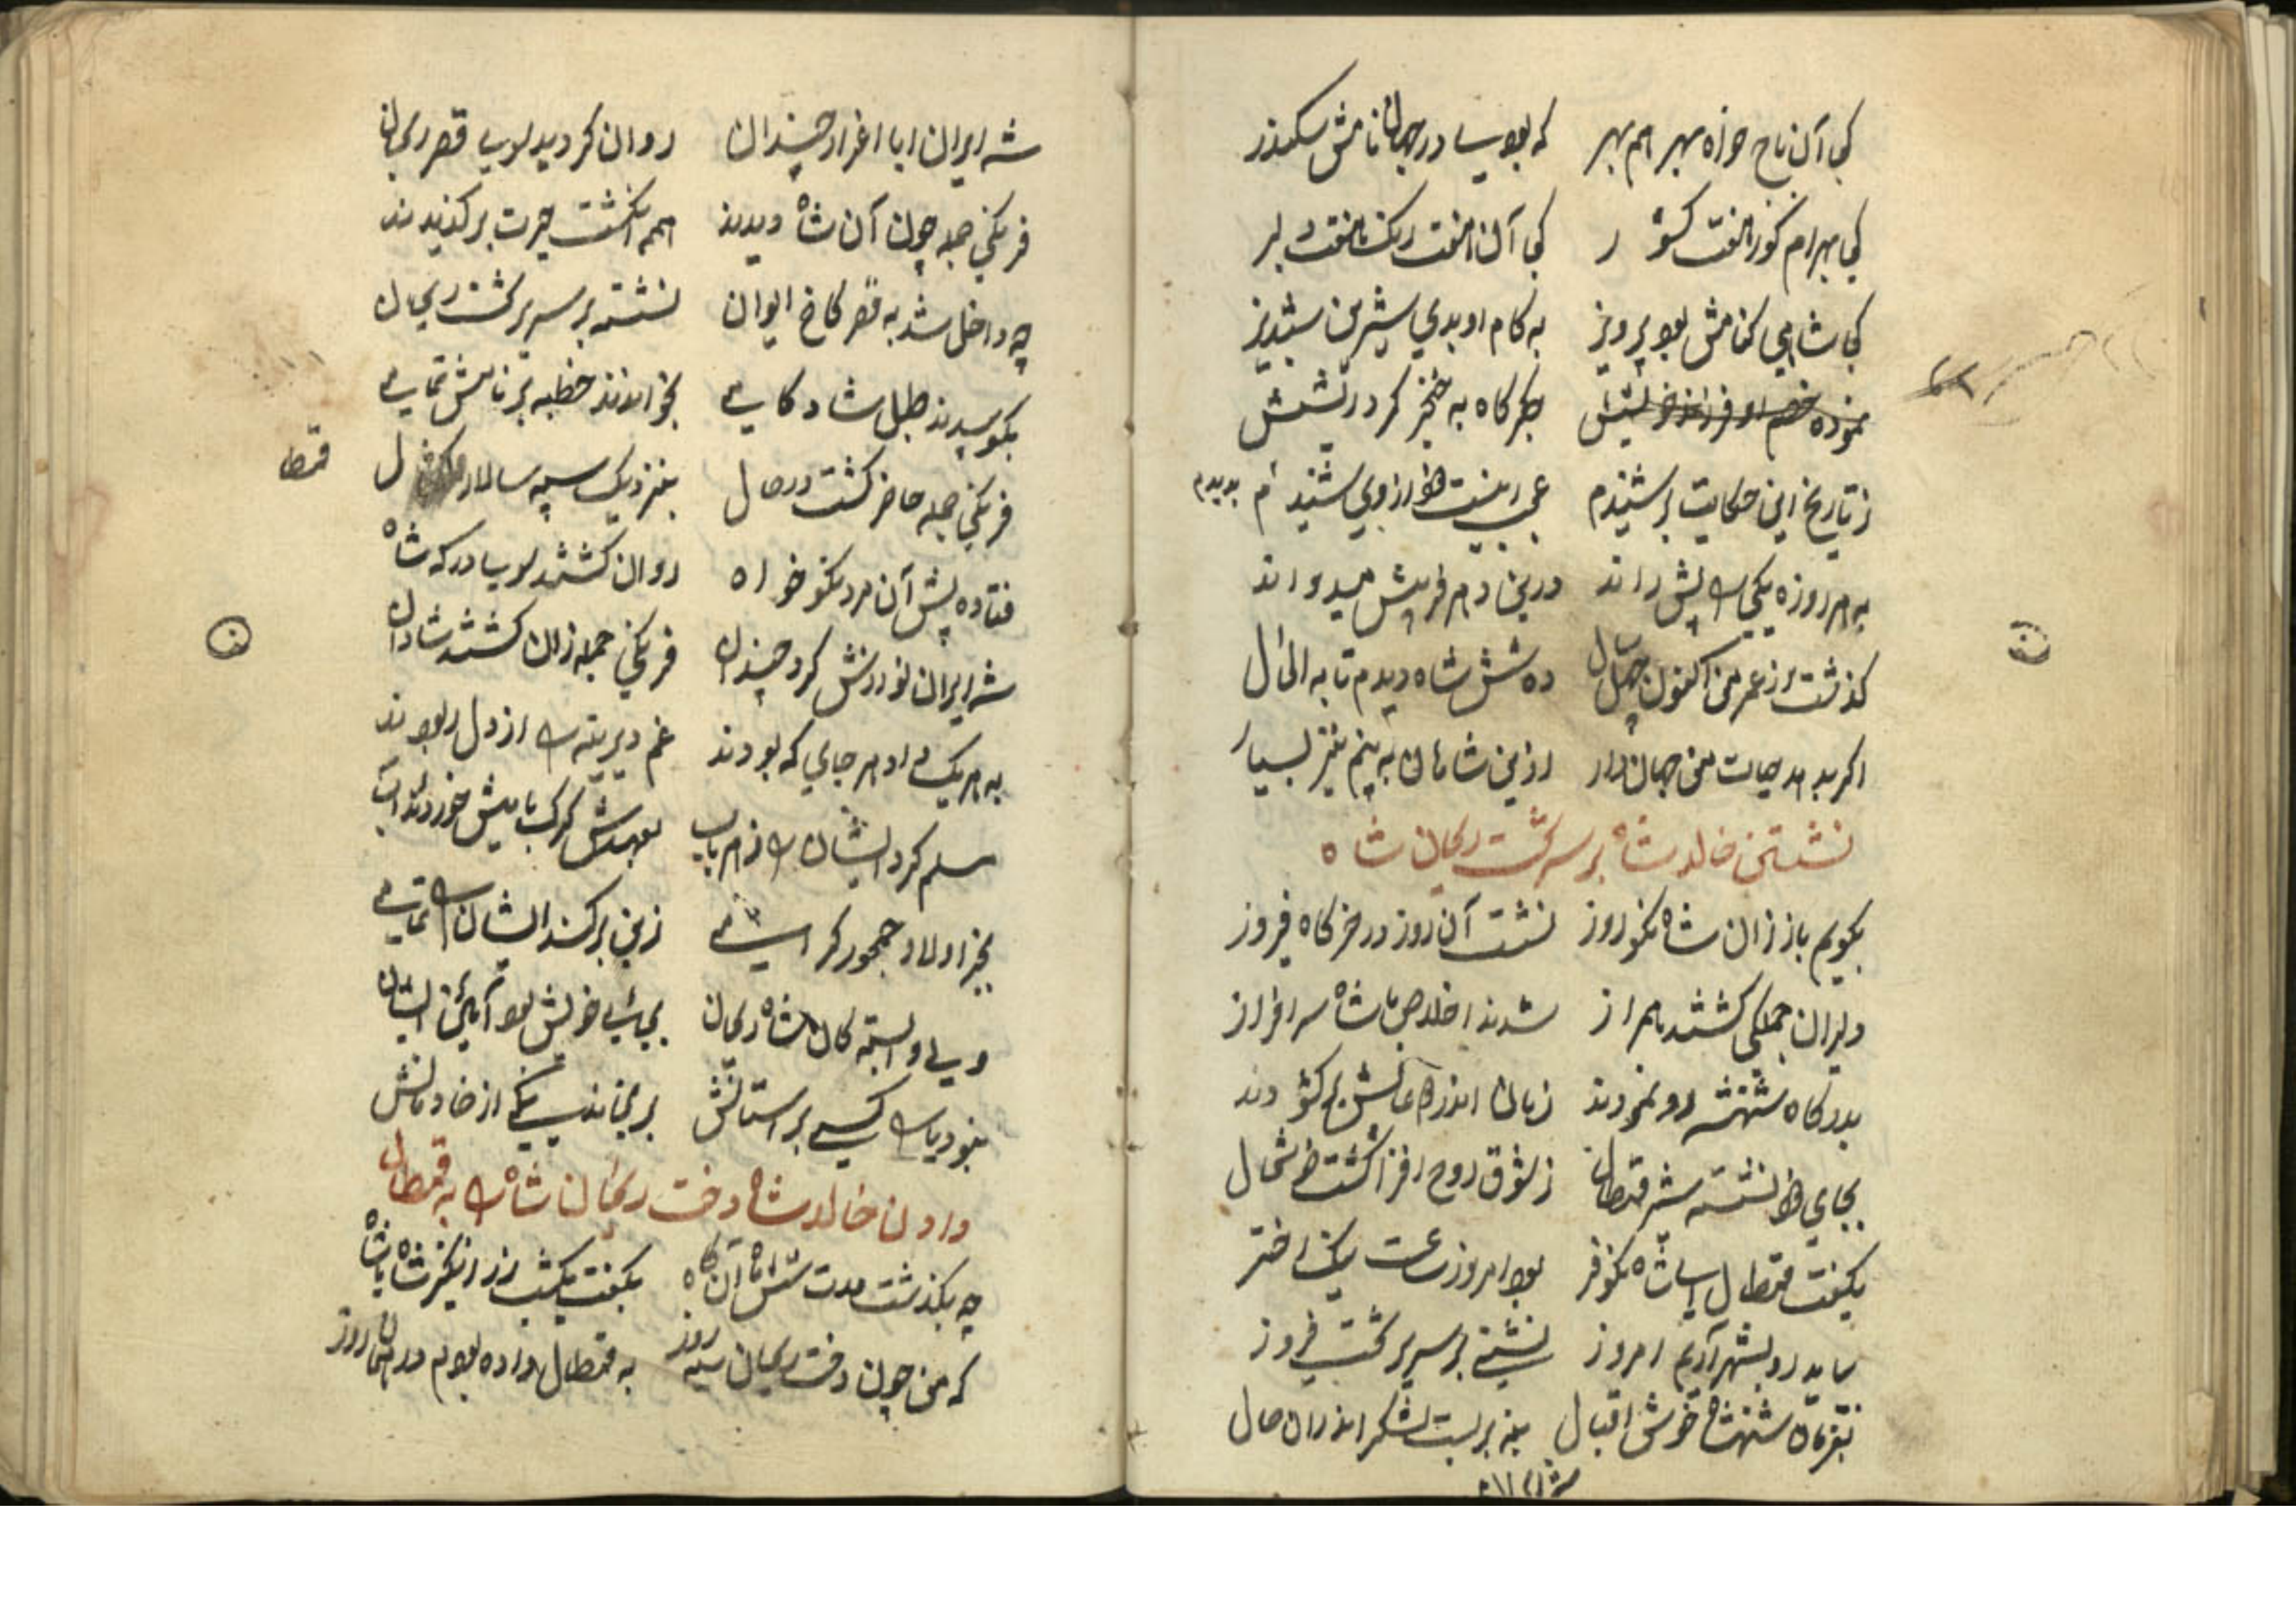 کی آن تاج خواه مهر هم مهر که بودی در جهان نامش سکندر
کی بهرام کور هفت کشور کی آن هفت رنک هفت دلبر
کی شاهی که نامش بود پرویز به کام او بدی شیرین شبدیز
نموده خصم او فرزند خویش جکرکاه به خنجر کرد ریشش
ز تاریخ این حکایت بر شنیدم عجب اینست خود از وی شنیدم بدیدم
به هر روزه یکی را پیش راند درین دم فریبش میدواند
کذشت از عمر من اکنون چهل سال ده شش شاه دیدم تا به الحال
اکر بدهد حیات من جهاندار ازین شاهان به بینم نیز بسیار
نشستن خالد شاه بر سر تخت ریحان شاه
بکویم باز زان شاه نکو روز نشست آن روز در خرکاه فیروز
دلیران جملکی کشتند همراز شدند اخلاص با شاه سرافراز
بدرکاه شهنشه رو نمودند زبان اندر دعایش برکشودند
بجای خود نشسته شیر قمطال ز شوق روح افزا کشت خوشحال
بکفت قمطال ای شاه نکوفر بود امروز ساعت نیک اختر
بباید رو بشهر آریم امروز نشینی بر سریر تخت فیروز
بفرمان شهنشاه خوش اقبال بنه بر بست لشکر اندران حال
شه ایران
شه ایران ابا اعزاز چندان روان کردید سوی قصر ریحان
فرنکی جمله چون آن شاه دیدند همه انکشت حیرت بر کزیدند
چه داخل شد به قصر کاخ ایوان نشسته بر سریر تخت ریحان
بکوبیدند طبل شادکامی بخواندند خطبه بر نامش تمامی
فرنکی جمله حاضر کشت در حال بنزدیک سپه سالار ل قمطا
فتاده پیش آن مرد نکوخواه روان کشتند سوی درکه شاه
شه ایران نوازش کرد چندان فرنکی جمله زان کشتند شادان
به هر یک داد هر جای که بودند غم دیرینه را از دل ربودند
مسلم کرد ایشان را ز هر باب بعهدش کرک با میش خوردند آب
بجز اولاد جمهور کرامی زمین برکند ایشان را تمامی
ولی وابسته کان شاه ریحان بجای خویش بود آئین ایشان
نبود یارا کسی بر استانش برنجاند یکی از خادمانش
دادن خالد شاه دخت ریحان شاه را به قمطال
چه بکذشت مدت شش ماه آنکاه بکفت یکشب زر انکیز شاه با شاه
که من چون دخت ریحان سیه روز به قمطال داده بودم در همان روز